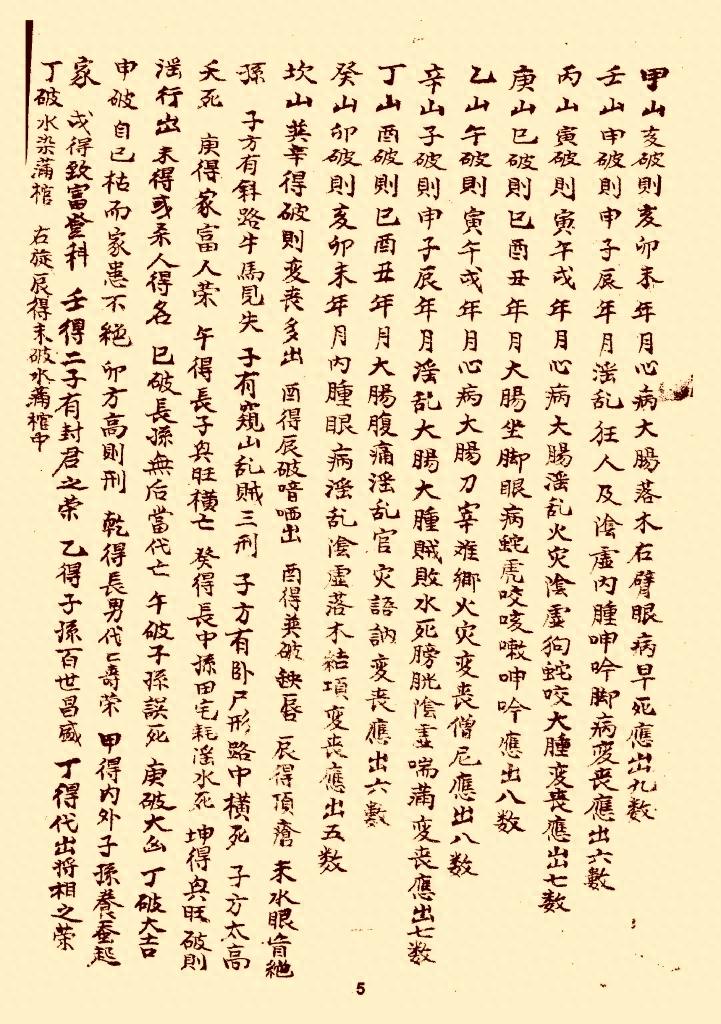 甲山亥破則亥卯未年月心病大腸落木右臂眼病早死應出九数
壬山申破則申子辰年月淫乱狂人及陰虛内腫呻吟脚病変喪應出六數
丙山寅破則寅午戌年月心病大腸淫乱火灾陰虛狗蛇咬大腫変喪應出七数
庚山巳破則巳酉丑年月大腸坐脚眼病蛇虎咬咳嗽呻吟應出八数
乙山午破則寅午戌年月心病大腸刀宰难鄉火灾変喪僧尼應出八数
辛山子破則申子辰年月淫乱大腸大腫賊敗水死膀胱陰虛喘滿変喪應出七数
丁山酉破則巳酉丑年月大腸腹痛淫乱官灾語訥変喪應出六數
癸山卯破則亥卯未年月内腫眼病淫乱陰虛落木結項変喪應出五数
坎山巽辛得破則変喪多出 酉得辰破喑哑出 酉得巽破缺唇 辰得頂瘡 未水眼盲絶
孫 子方有斜路牛馬見失 子有窺山乱賊三刑 子方有卧尸形路中横死 子方太高
夭死 庚得家富人荣 午得長子與旺横亡 癸得長中孫田宅耗淫水死 坤得與旺 破則
淫行出 未得或柔人得名 巳破長孫無后當代亡 午破子孫誤死 庚破大凶 丁破大吉
申破自已枯而家患不絶 卯方高則刑 乾得長男代亡寿荣 甲得内外子孫養蚕起
家 戌得致富登科 壬得二子有封君之荣 乙得子孫百世昌盛 丁得代出将相之荣
丁破水染滿棺 右旋辰得未破水滿棺中
5